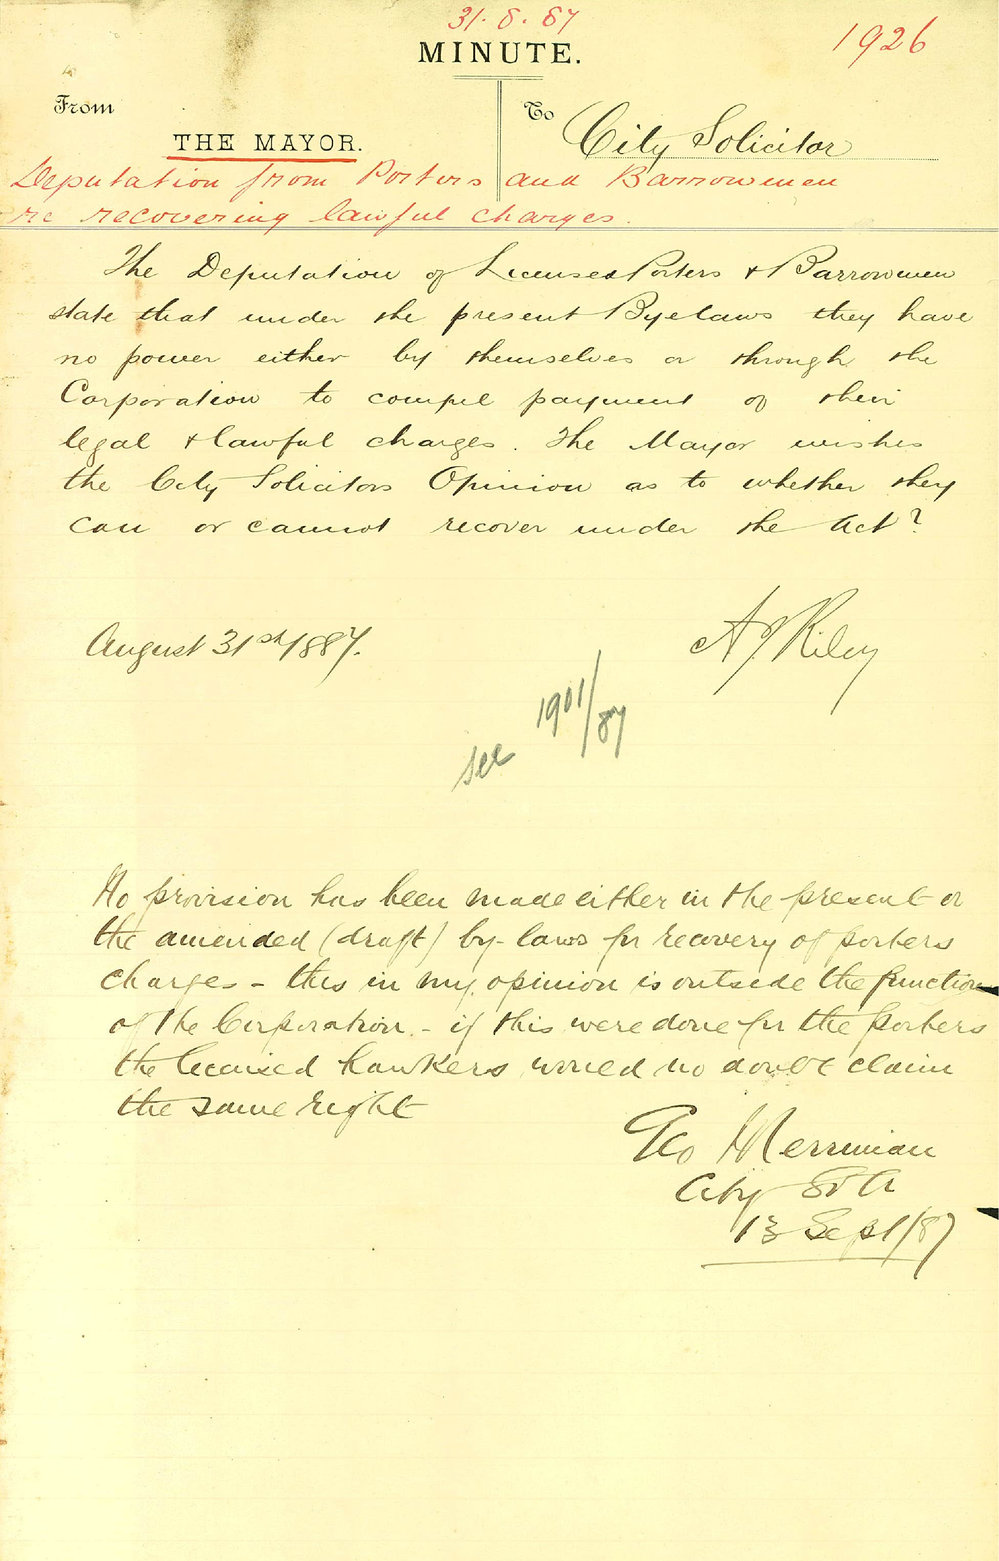 31.8.87
1926
MINUTE.
From
To
THE MAYOR.
City Solicitor
Deputation from Porters and Barrowmen
re recovering lawful charges.
The Deputation of Licensed Porters & Barrowmen
state that under the present Byelaws they have
no power either by themselves or through the
Corporation to compel payment of their
legal & lawful charges. The Mayor wishes
the City Solicitors Opinion as to whether they
can or cannot recover under the Act?
August 31st 1887.
A J Riley
see 1901/87
No provision has been made either in the present or
the amended (draft) by-laws for recovery of porters
charges - this in my opinion is outside the function
of the Corporation - if this were done for the porters
the licensed hawkers would no doubt claim
the same right
Geo Merriman
City Solr
13 Sept/87